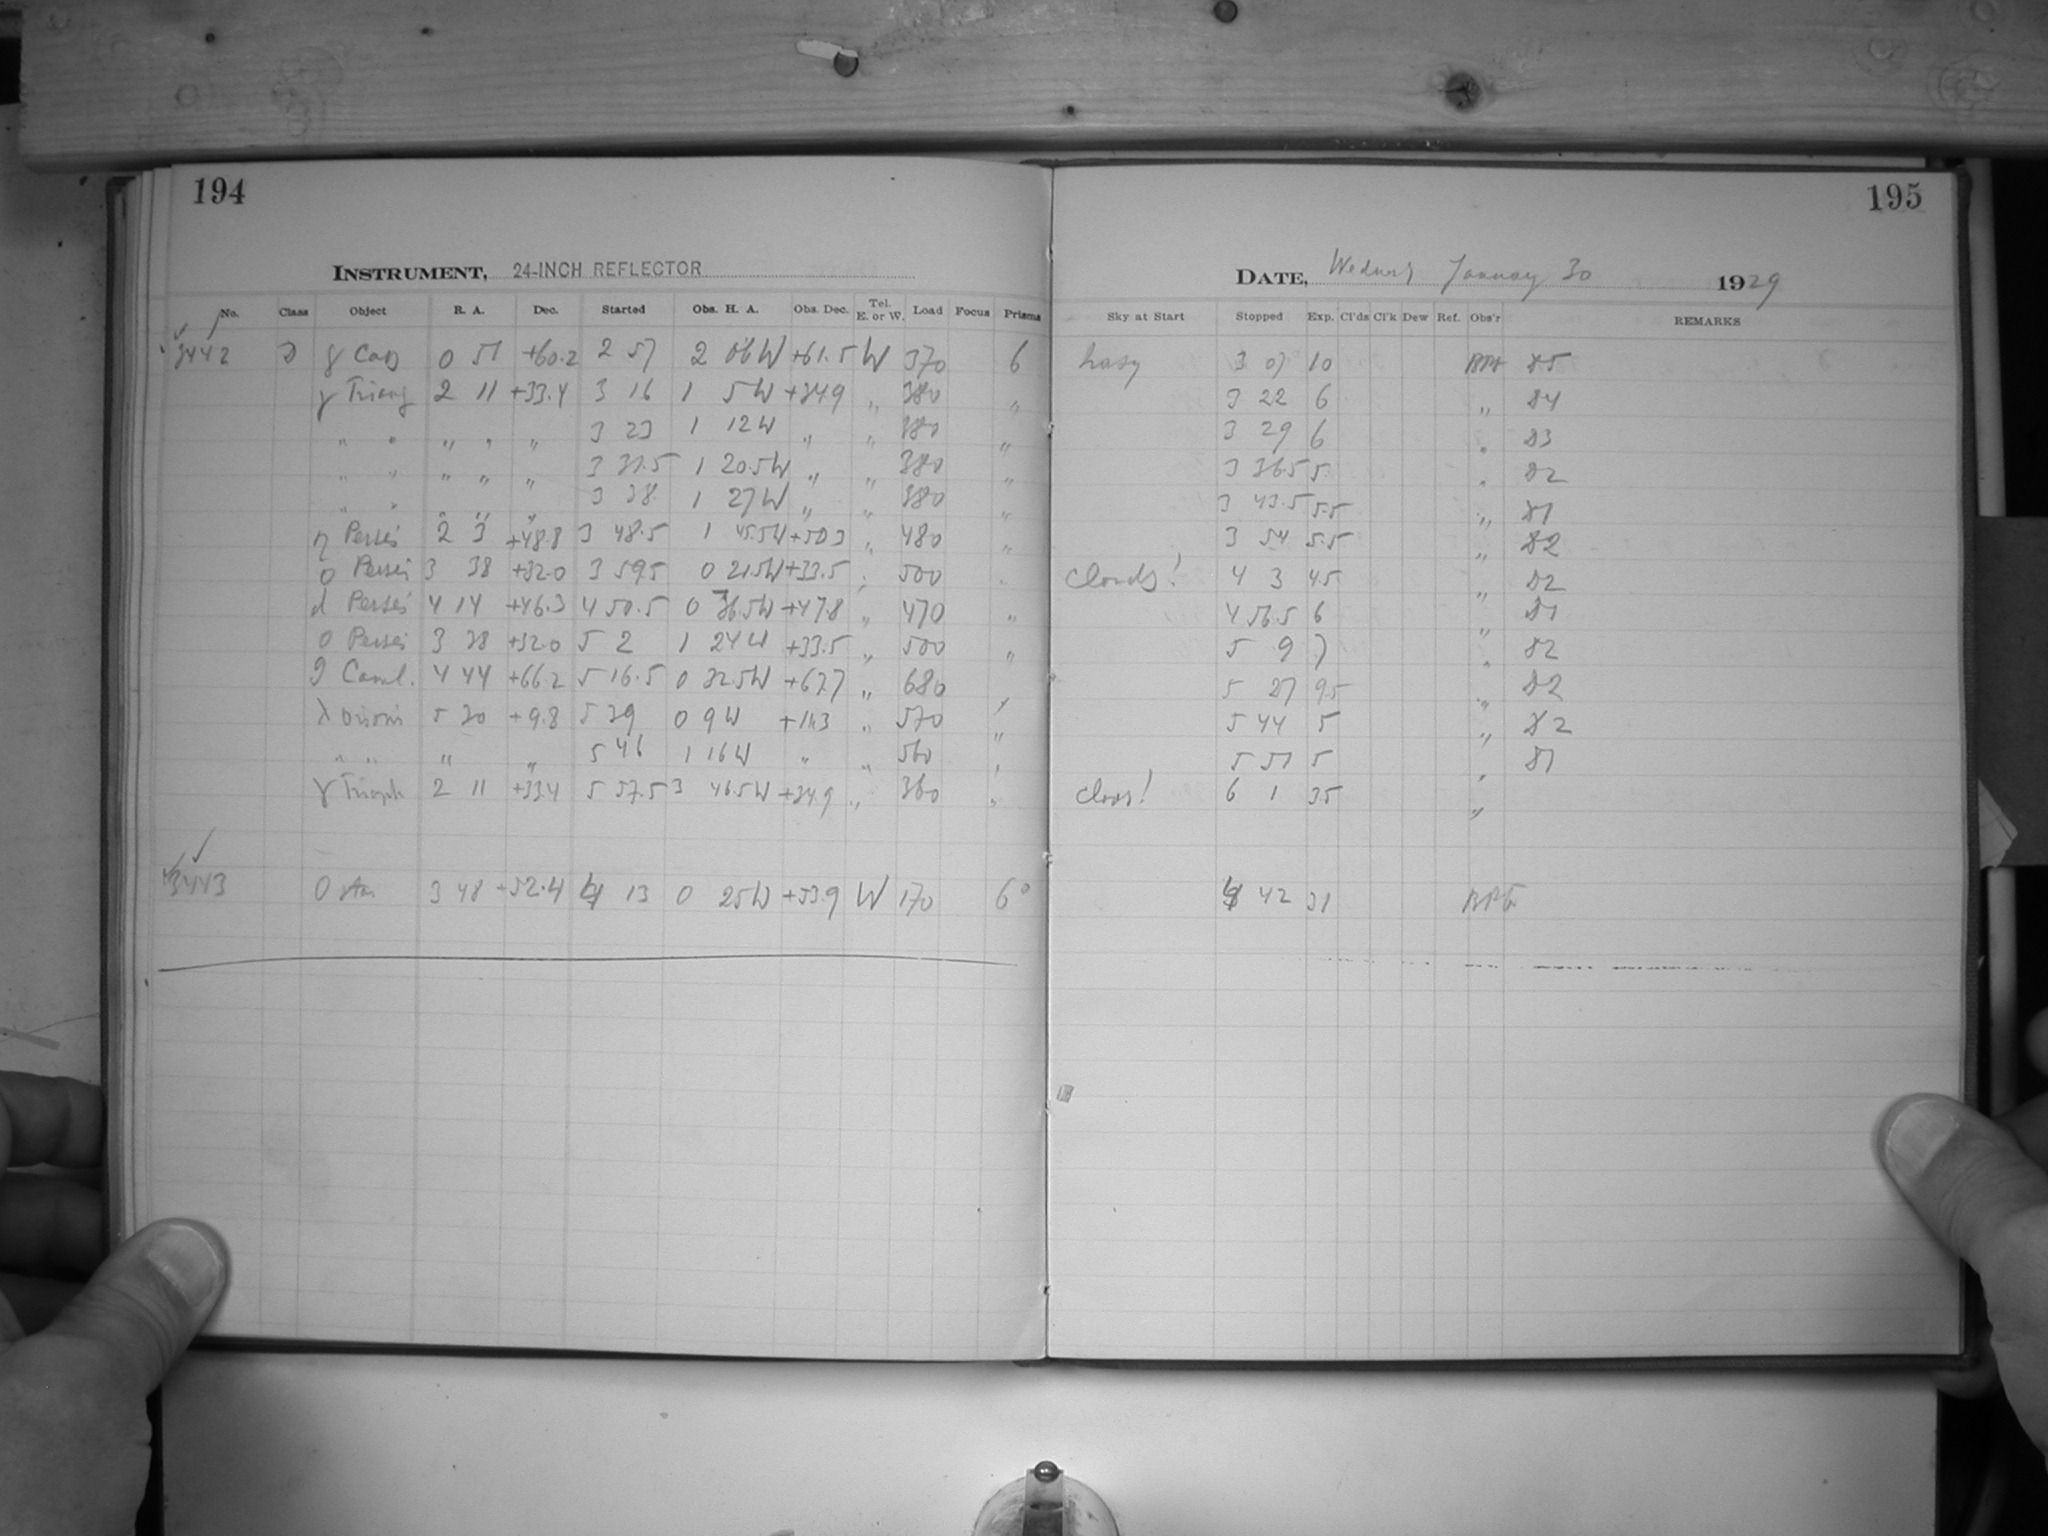 194
INSTRUMENT, 24-INCH REFLECTOR
No. Class Object R. A. Dec. Started Obs. H. A. Obs. Dec. Tel. E. or W. Load Focus Prisms
3442 γ Cas 0 51 +60.2 2 57 2 06W +61.5 W 370 6
γ Triang 2 11 +33.4 3 16 1 5W +34.9 " 380 "
" " " " " 3 23 1 12W " " 380 "
" " " " " 3 31.5 1 20.5W " " 380 "
" " " " " 3 38 1 27W " " 380 "
η Persei 2 3 +48.8 3 48.5 1 45.5W +50.3 " 480 "
o Persei 3 38 +32.0 3 59.5 0 21.5W +33.5 " 500 "
d Persei 4 14 +46.3 4 50.5 0 36.5W +47.8 " 470 "
o Persei 3 38 +32.0 5 2 1 24W +33.5 " 500 "
9 Caml. 4 44 +66.2 5 16.5 0 32.5W +67.7 " 680 "
λ Orionis 5 30 +9.8 5 39 0 9W +11.3 " 570 "
" " " " 5 46 1 16W " " 560 "
γ Triang 2 11 +33.4 5 57.5 3 46.5W +34.9 " 360 "
3443 0 star 3 48 +52.4 4 13 0 25W +53.9 W 170 6°
195
DATE, Wednesd January 30 1929
Sky at Start Stopped Exp. Cl'ds Cl'k Dew Ref. Obs'r REMARKS
hazy 3 07 10 85
3 22 6 " 84
3 29 6 " 83
3 36.5 5 " 82
3 43.5 5.5 " 81
3 54 5.5 " 82
Clouds! 4 3 4.5 " 82
4 56.5 6 " 81
5 9 7 " 82
5 27 9.5 " 82
5 44 5 " 82
5 51 5 " 81
6 1 3.5 "
4 42 31